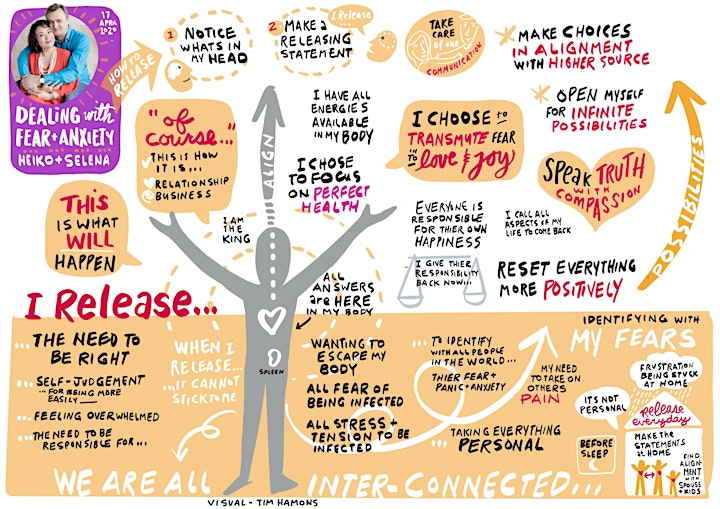 17
APRIL
2020
DEALING with
FEAR + ANXIETY
HEIKO + SELENA
HOW TO
RELEASE
1 NOTICE
WHATS IN
MY HEAD
2 MAKE A
RELEASING
STATEMENT
I Release...
TAKE
CARE
OF OUR
COMMUNICATION
MAKE CHOICES
IN ALIGNMENT
WITH HIGHER SOURCE
OPEN MYSELF
FOR INFINITE
POSSIBILITIES
"Of
Course..."
THIS IS HOW
IT IS...
RELATIONSHIP
BUSINESS
ALIGN
I HAVE ALL
ENERGIES
AVAILABLE
IN MY BODY
I CHOSE
TO FOCUS
ON PERFECT
HEALTH
I CHOOSE to
TRANSMUTE FEAR
INTO love & joy
SPEAK TRUTH
WITH
COMPASSION
POSSIBILITIES
THIS
IS WHAT
WILL
HAPPEN
I AM
THE
KING
EVERYONE IS
RESPONSIBLE
FOR THIER OWN
HAPPINESS
I CALL ALL
ASPECTS OF MY
LIFE TO COME BACK
I GIVE THIER
RESPONSIBILITY
BACK NOW...
RESET EVERYTHING
MORE POSITIVELY
ALL
ANSWERS
are HERE
IN MY BODY
SPLEEN
I Release...
...THE NEED TO
BE RIGHT
...SELF-JUDGEMENT
...FOR BEING MORE
EASILY
...FEELING OVERWHELMED
...THE NEED TO BE
RESPONSIBLE FOR...
WHEN I
RELEASE...
...IT CANNOT
STICK TO ME
WANTING TO
ESCAPE MY
BODY
ALL FEAR OF
BEING INFECTED
ALL STRESS +
TENSION TO BE
INFECTED
...TO IDENTIFY
WITH ALL PEOPLE
IN THE WORLD...
THIER FEAR +
PANIC + ANXIETY
MY NEED
TO TAKE ON
OTHERS
PAIN
...TAKING EVERYTHING
PERSONAL
IDENTIFYING WITH
MY FEARS
FRUSTRATION
BEING STUCK
AT HOME
IT'S NOT
PERSONAL
RELEASE
everyday
BEFORE
SLEEP
MAKE THE
STATEMENTS
at HOME
FIND
ALIGN-
MENT
WITH
SPOUSE
+ KIDS
WE ARE ALL INTER-CONNECTED...
VISUAL - TIM HAMONS